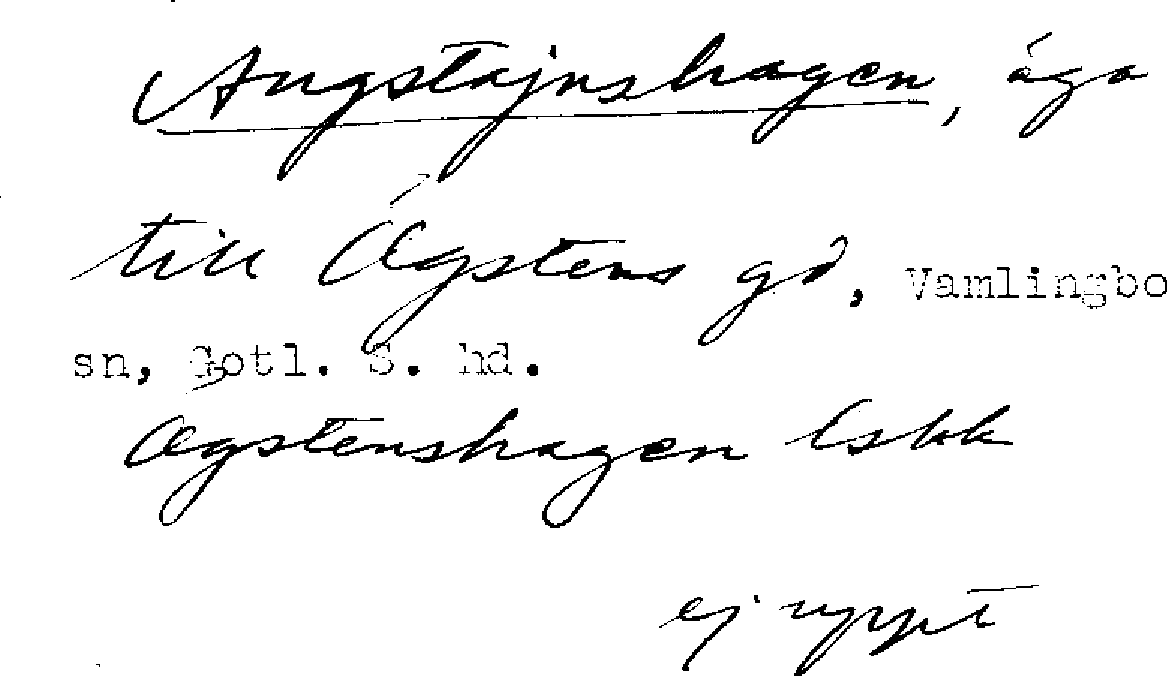 Augstajnshagen, äga
till Ägstens gd, Vamlingbo
sn, Gotl. S. hd.
Ägstenshagen lskk
ej uppt